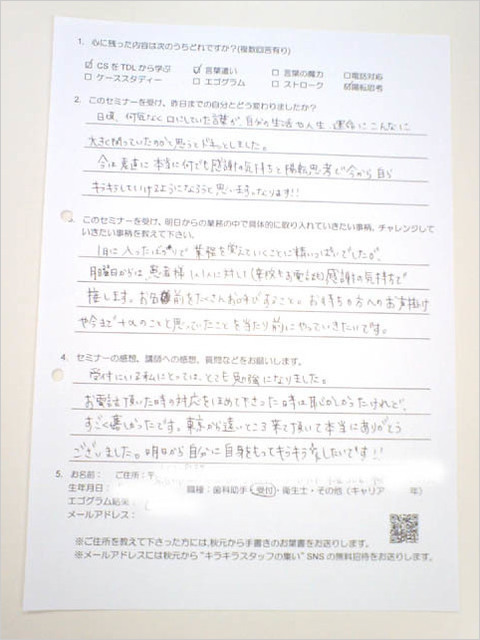 1. 心に残った内容は次のうちどれですか?(複数回答有り)
☑ CSをTDLから学ぶ ☑ 言葉遣い □ 言葉の魔力 □電話対応
□ ケーススタディー □ エゴグラム □ ストローク ☑陽転思考
2. このセミナーを受け、昨日までの自分とどう変わりましたか?
日頃、何気なく口にしていた言葉が、自分の生活や人生、運命にこんなに
大きく関っていたのかと思うとドキッとしました。
今は素直に本当に何でも感謝の気持ちと陽転思考で今から自ら
キラキラしていけるようになろうと思います。なります!!
このセミナーを受け、明日からの業務の中で具体的に取り入れていきたい事柄、チャレンジして
いきたい事柄を教えて下さい。
1月に入ったばかりで業務を覚えていくことに精いっぱいでしたが、
月曜日からは、患者様1人1人に対し(来院もお電話も)感謝の気持ちで
接します。お名前をたくさんお呼びすること。お持ちの方へのお声掛け
や今まで+αのことと思っていたことを当たり前にやっていきたいです。
4. セミナーの感想、講師への感想、質問などをお願いします。
受付にいる私にとっては、とても勉強になりました。
お電話頂いた時の対応をほめて下さった時は恥しかったけれど、
すごく嬉しかったです。東京から遠いところ来て頂いて本当にありがとう
ございました。明日から自分に自身をもってキラキラしたいです!!
5. お名前: ご住所:〒
生年月日: 職種:歯科助手・受付・衛生士・その他(キャリア 年)
エゴグラム結果:
メールアドレス:
※ご住所を教えて下さった方には、秋元から手書きのお葉書をお送りします。
※メールアドレスには秋元から“キラキラスタッフの集い”SNSの無料招待をお送りします。